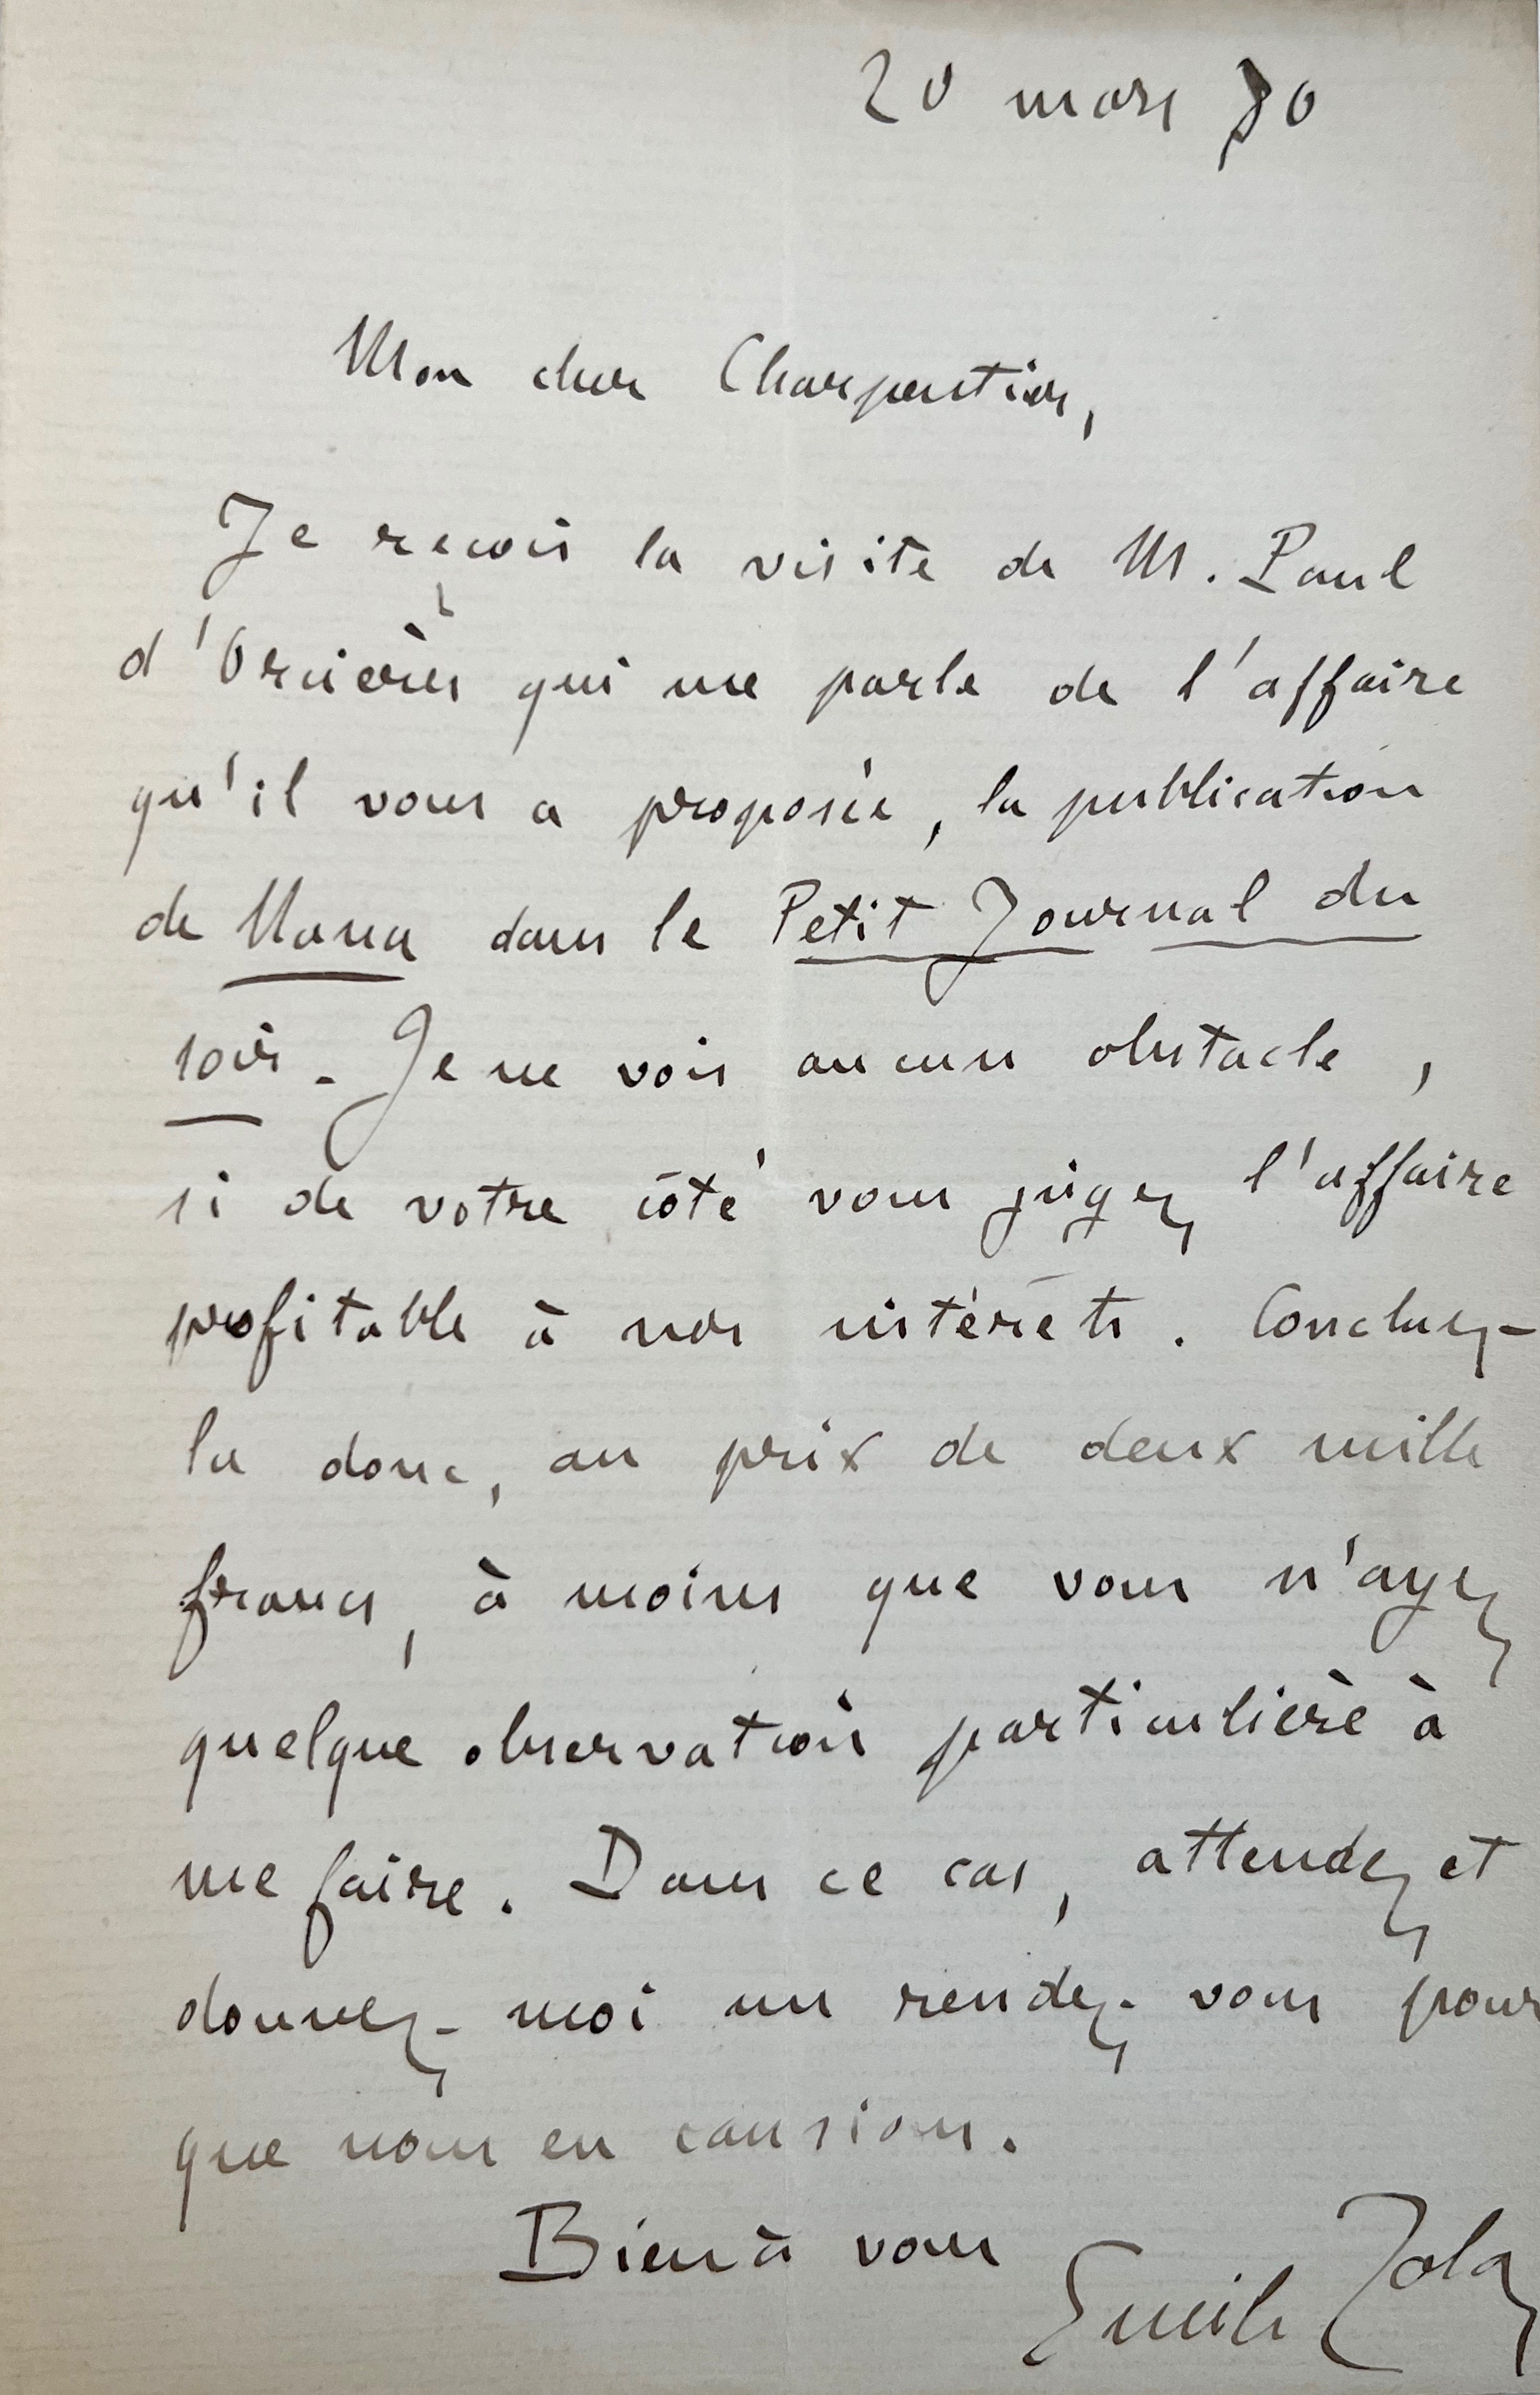 20 mars 80
Mon cher Charpentier,
Je reçois la visite de M. Paul
d'Orcières qui me parle de l'affaire
qu'il vous a proposée, la publication
de Nana dans le Petit Journal du
soir. Je ne vois aucun obstacle,
si de votre côté vous jugez l'affaire
profitable à nos intérêts. Concluez-
la donc, au prix de deux mille
francs, à moins que vous n'ayez
quelque observation particulière à
me faire. Dans ce cas, attendez et
donnez-moi un rendez-vous pour
que nous en causions.
Bien à vous
Emile Zola